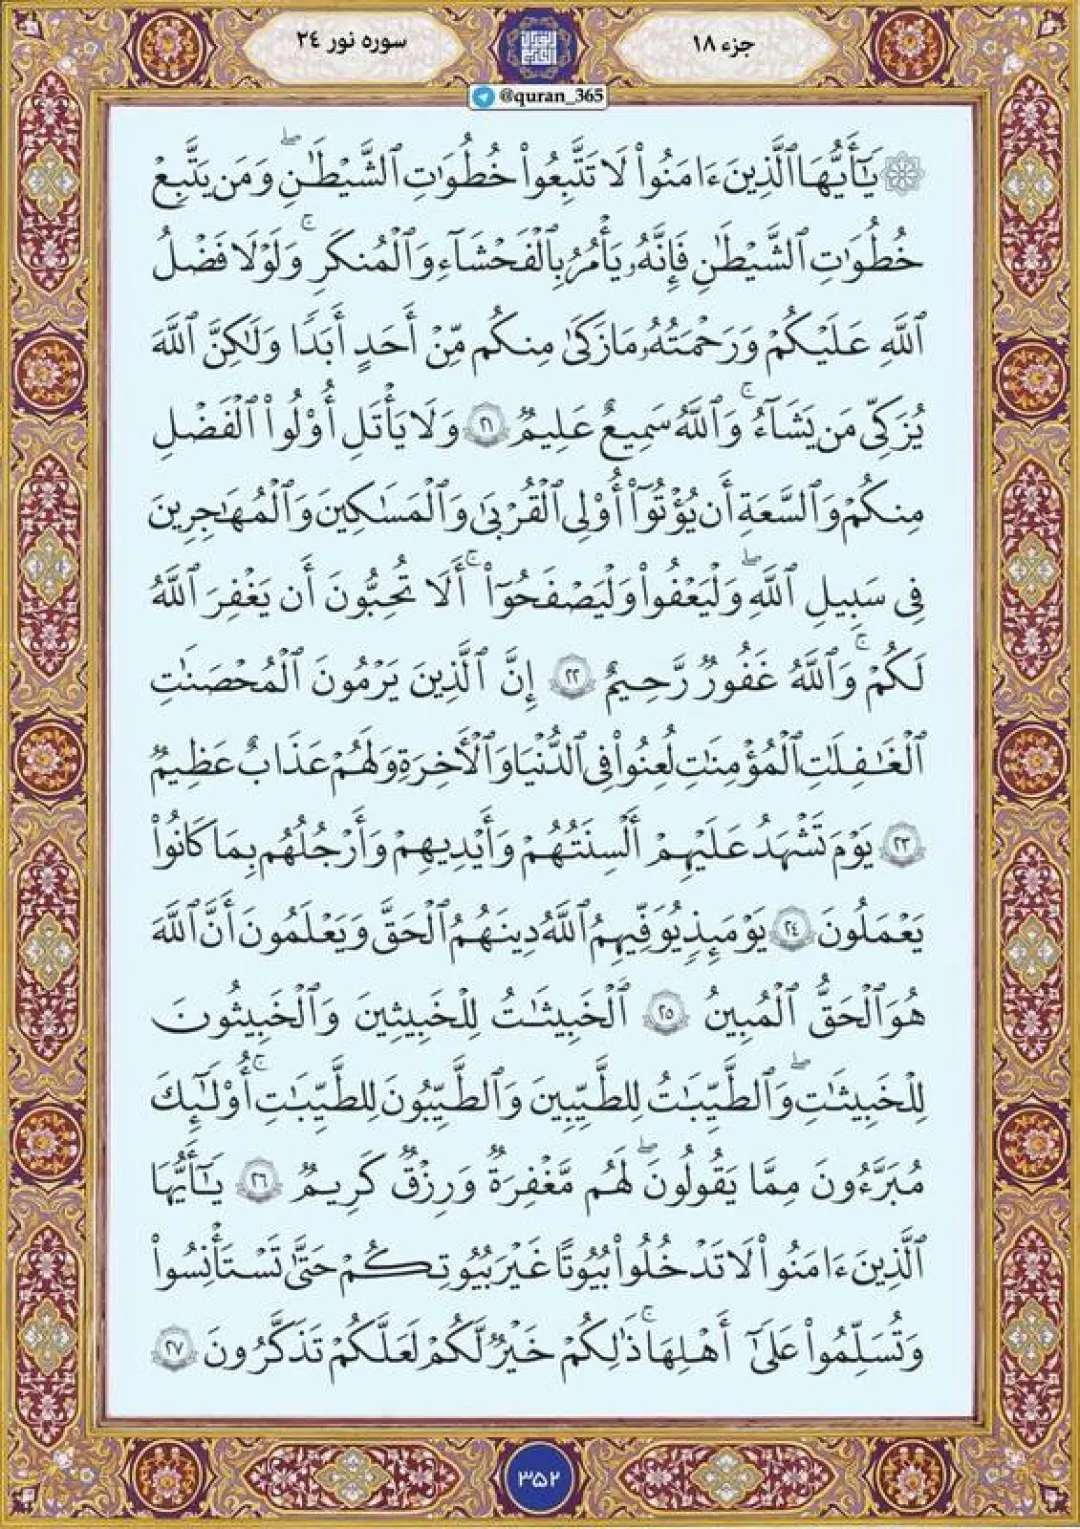 جزء ۱۸
سوره نور ۲٤
@quran_365
۞ يَٰٓأَيُّهَا ٱلَّذِينَ ءَامَنُوا۟ لَا تَتَّبِعُوا۟ خُطُوَٰتِ ٱلشَّيْطَٰنِ ۖ وَمَن يَتَّبِعْ
خُطُوَٰتِ ٱلشَّيْطَٰنِ فَإِنَّهُۥ يَأْمُرُ بِٱلْفَحْشَآءِ وَٱلْمُنكَرِ ۚ وَلَوْلَا فَضْلُ
ٱللَّهِ عَلَيْكُمْ وَرَحْمَتُهُۥ مَا زَكَىٰ مِنكُم مِّنْ أَحَدٍ أَبَدًا وَلَٰكِنَّ ٱللَّهَ
يُزَكِّى مَن يَشَآءُ ۗ وَٱللَّهُ سَمِيعٌ عَلِيمٌ ٢١ وَلَا يَأْتَلِ أُو۟لُوا۟ ٱلْفَضْلِ
مِنكُمْ وَٱلسَّعَةِ أَن يُؤْتُوٓا۟ أُو۟لِى ٱلْقُرْبَىٰ وَٱلْمَسَٰكِينَ وَٱلْمُهَٰجِرِينَ
فِى سَبِيلِ ٱللَّهِ ۖ وَلْيَعْفُوا۟ وَلْيَصْفَحُوٓا۟ ۗ أَلَا تُحِبُّونَ أَن يَغْفِرَ ٱللَّهُ
لَكُمْ ۗ وَٱللَّهُ غَفُورٌ رَّحِيمٌ ٢٢ إِنَّ ٱلَّذِينَ يَرْمُونَ ٱلْمُحْصَنَٰتِ
ٱلْغَٰفِلَٰتِ ٱلْمُؤْمِنَٰتِ لُعِنُوا۟ فِى ٱلدُّنْيَا وَٱلْءَاخِرَةِ وَلَهُمْ عَذَابٌ عَظِيمٌ
٢٣ يَوْمَ تَشْهَدُ عَلَيْهِمْ أَلْسِنَتُهُمْ وَأَيْدِيهِمْ وَأَرْجُلُهُم بِمَا كَانُوا۟
يَعْمَلُونَ ٢٤ يَوْمَئِذٍ يُوَفِّيهِمُ ٱللَّهُ دِينَهُمُ ٱلْحَقَّ وَيَعْلَمُونَ أَنَّ ٱللَّهَ
هُوَ ٱلْحَقُّ ٱلْمُبِينُ ٢٥ ٱلْخَبِيثَٰتُ لِلْخَبِيثِينَ وَٱلْخَبِيثُونَ
لِلْخَبِيثَٰتِ ۖ وَٱلطَّيِّبَٰتُ لِلطَّيِّبِينَ وَٱلطَّيِّبُونَ لِلطَّيِّبَٰتِ ۚ أُو۟لَٰٓئِكَ
مُبَرَّءُونَ مِمَّا يَقُولُونَ ۖ لَهُم مَّغْفِرَةٌ وَرِزْقٌ كَرِيمٌ ٢٦ يَٰٓأَيُّهَا
ٱلَّذِينَ ءَامَنُوا۟ لَا تَدْخُلُوا۟ بُيُوتًا غَيْرَ بُيُوتِكُمْ حَتَّىٰ تَسْتَأْنِسُوا۟
وَتُسَلِّمُوا۟ عَلَىٰٓ أَهْلِهَا ۚ ذَٰلِكُمْ خَيْرٌ لَّكُمْ لَعَلَّكُمْ تَذَكَّرُونَ ٢٧
۳۵۲